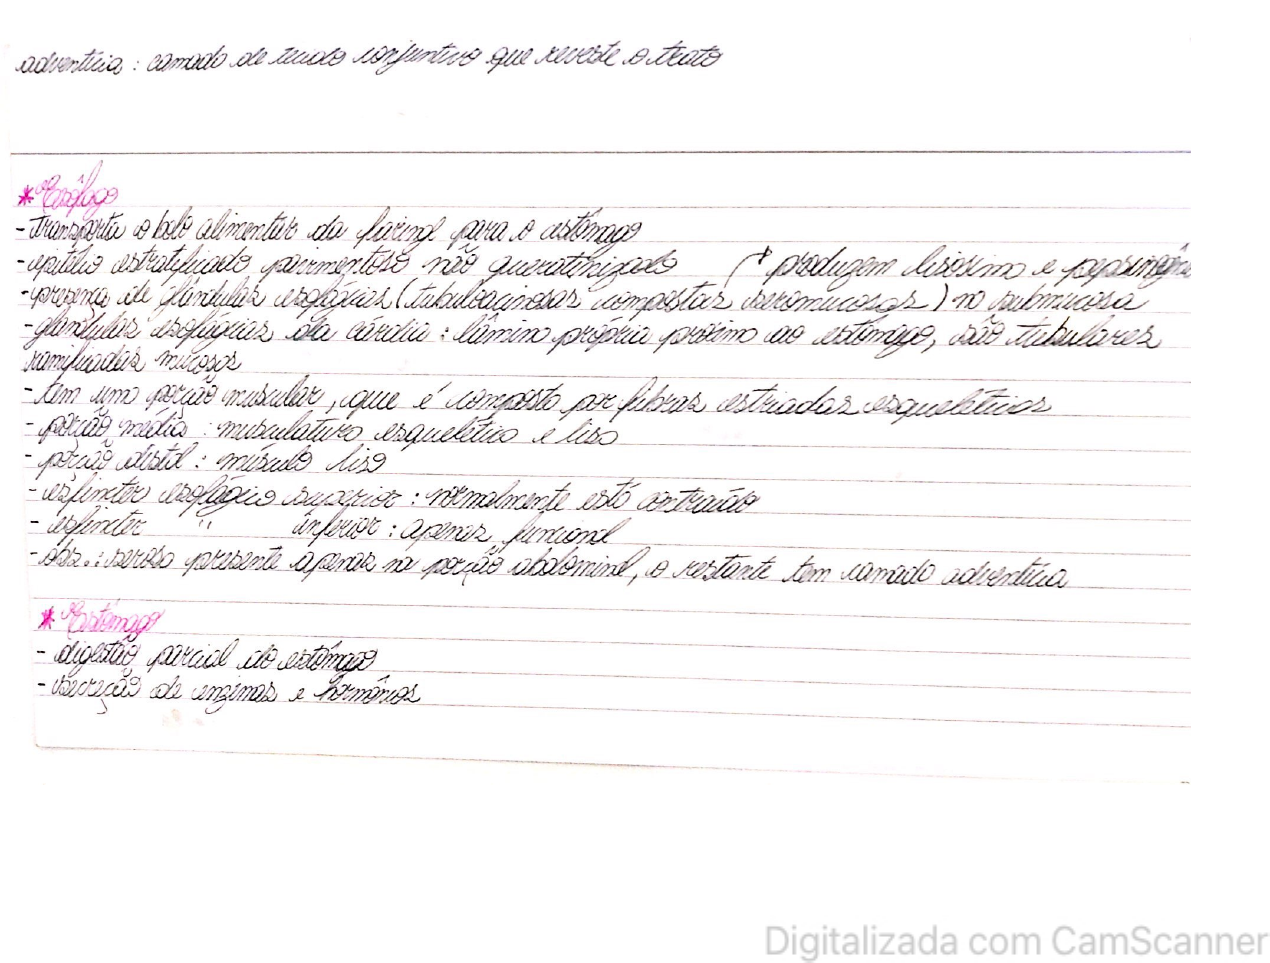 adventícia: camada de tecido conjuntivo que reveste o trato
* Esôfago
- transporta o bolo alimentar da faringe para o estômago
- epitélio estratificado pavimentoso não queratinizado → produzem lisosimo e pepsinogênio
- presença de glândulas esofágicas (tubuloacinosas compostas seromucosas) na submucosa
- glândulas esofágicas da cárdia: lâmina própria próximo ao estômago, são tubulares
ramificadas mucosas
- tem uma porção muscular, que é composta por fibras estriadas esqueléticas
- porção média: musculatura esquelética e lisa
- porção distal: músculo liso
- esfíncter esofágico superior: normalmente está contraído
- esfíncter " inferior: apenas funcional
- obs.: serosa presente apenas na porção abdominal, o restante tem camada adventícia
* Estômago
- digestão parcial do estômago
- secreção de enzimas e hormônios
Digitalizada com CamScanner